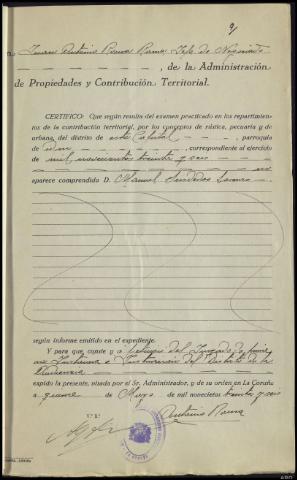 9
Juan Antonio Rama Rama Jefe de Negociado
, de la Administración
de Propiedades y Contribución Territorial.
CERTIFICO: Que según resulta del examen practicado en los repartimien-
tos de la contribución territorial, por los conceptos de rústica, pecuaria y de
urbana, del distrito de esta Capital, parroquia
de , correspondiente al ejercicio
de mil novecientos treinta y seis
no
aparece comprendido D. Manuel
según informe emitido en el expediente.
Y para que conste y a del Juzgado de
Instancia e Instrucción del Distrito de la
Audiencia
expido la presente, visada por el Sr. Administrador, y de su orden en La Coruña
a quince de Mayo de mil novecientos treinta y seis
V.º B.º
Antonio Rama